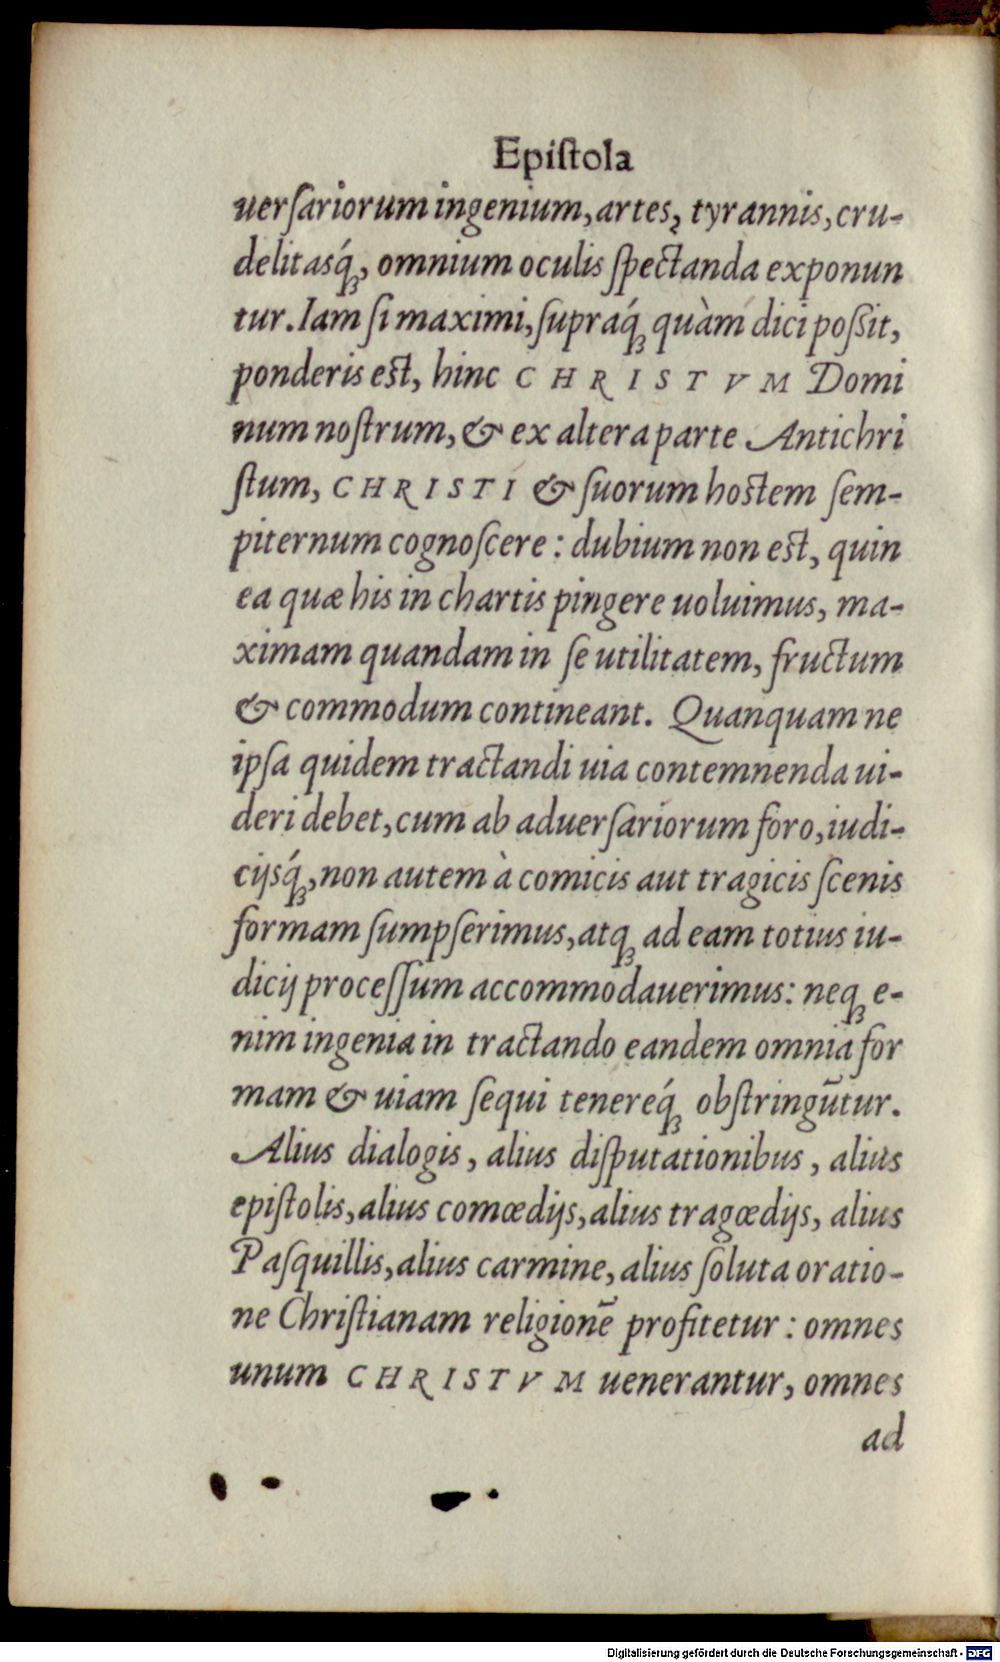 Epiſtola
uerſariorum ingenium, artes, tyrannis, cru-
delitasq́ꝫ, omnium oculis ſpectanda exponun
tur. Iam ſi maximi, ſupraq́ꝫ quàm dici poſsit,
ponderis eſt, hinc CHRISTVM Domi
num noſtrum, & ex altera parte Antichri
ſtum, CHRISTI & ſuorum hoſtem ſem-
piternum cognoſcere: dubium non eſt, quin
ea quæ his in chartis pingere uoluimus, ma-
ximam quandam in ſe utilitatem, fructum
& commodum contineant. Quanquam ne
ipſa quidem tractandi uia contemnenda ui-
deri debet, cum ab aduerſariorum foro, iudi-
cijsq́ꝫ, non autem à comicis aut tragicis ſcenis
formam ſumpſerimus, atqꝫ ad eam totius iu-
dicij proceſſum accommodauerimus: neqꝫ e-
nim ingenia in tractando eandem omnia for
mam & uiam ſequi tenereq́ꝫ obſtringūtur.
Alius dialogis, alius diſputationibus, alius
epiſtolis, alius comœdijs, alius tragœdijs, alius
Paſquillis, alius carmine, alius ſoluta oratio-
ne Chriſtianam religionē profitetur: omnes
unum CHRISTVM uenerantur, omnes
ad
Digitalisierung gefördert durch die Deutsche Forschungsgemeinschaft - DFG